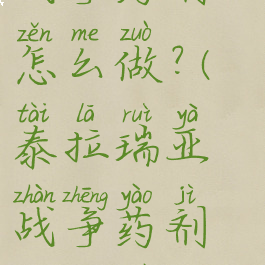 zěn me zuò
怎么做?(
tài lā ruì yà
泰拉瑞亚
zhàn zhēng yào jì
战争药剂